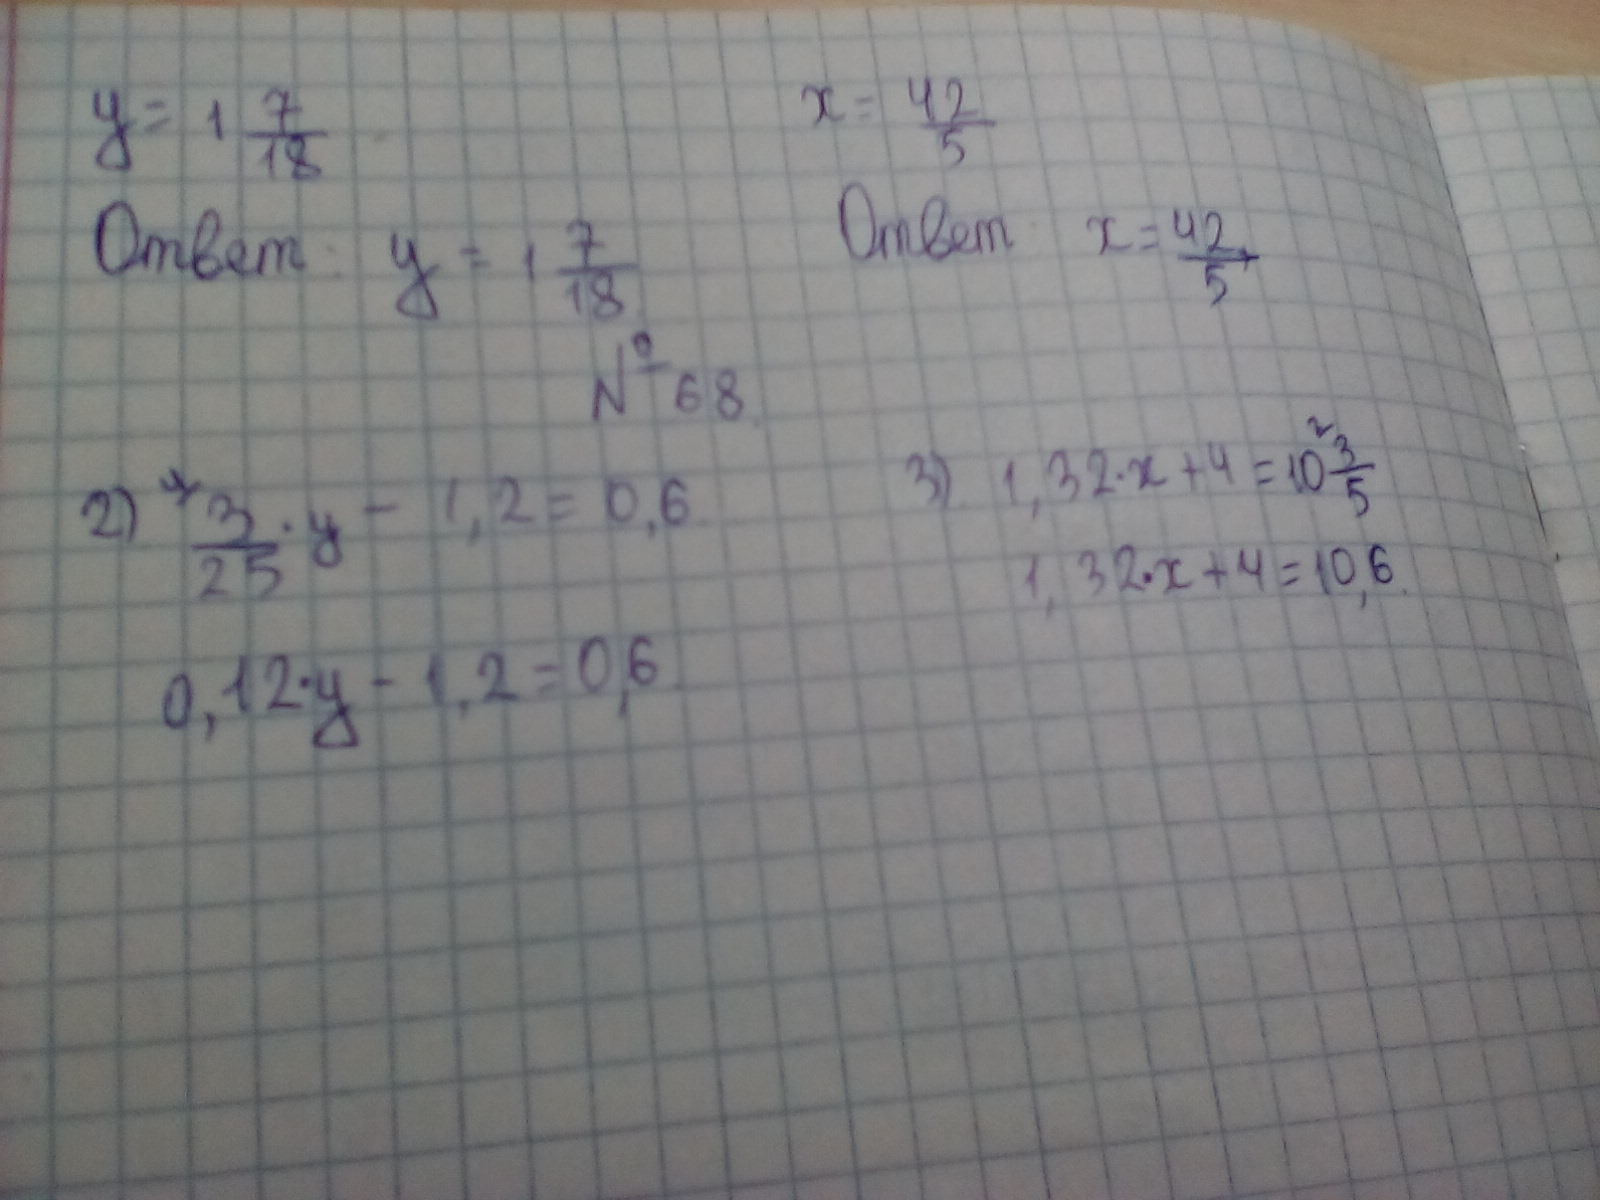 y = 1 7/18
x = 42/5
Ответ: y = 1 7/18
Ответ: x = 42/5
№ 68
2) 4 3/25 · y - 1,2 = 0,6
3) 1,32 · x + 4 = 10 2 3/5
0,12 · y - 1,2 = 0,6
1,32 · x + 4 = 10,6